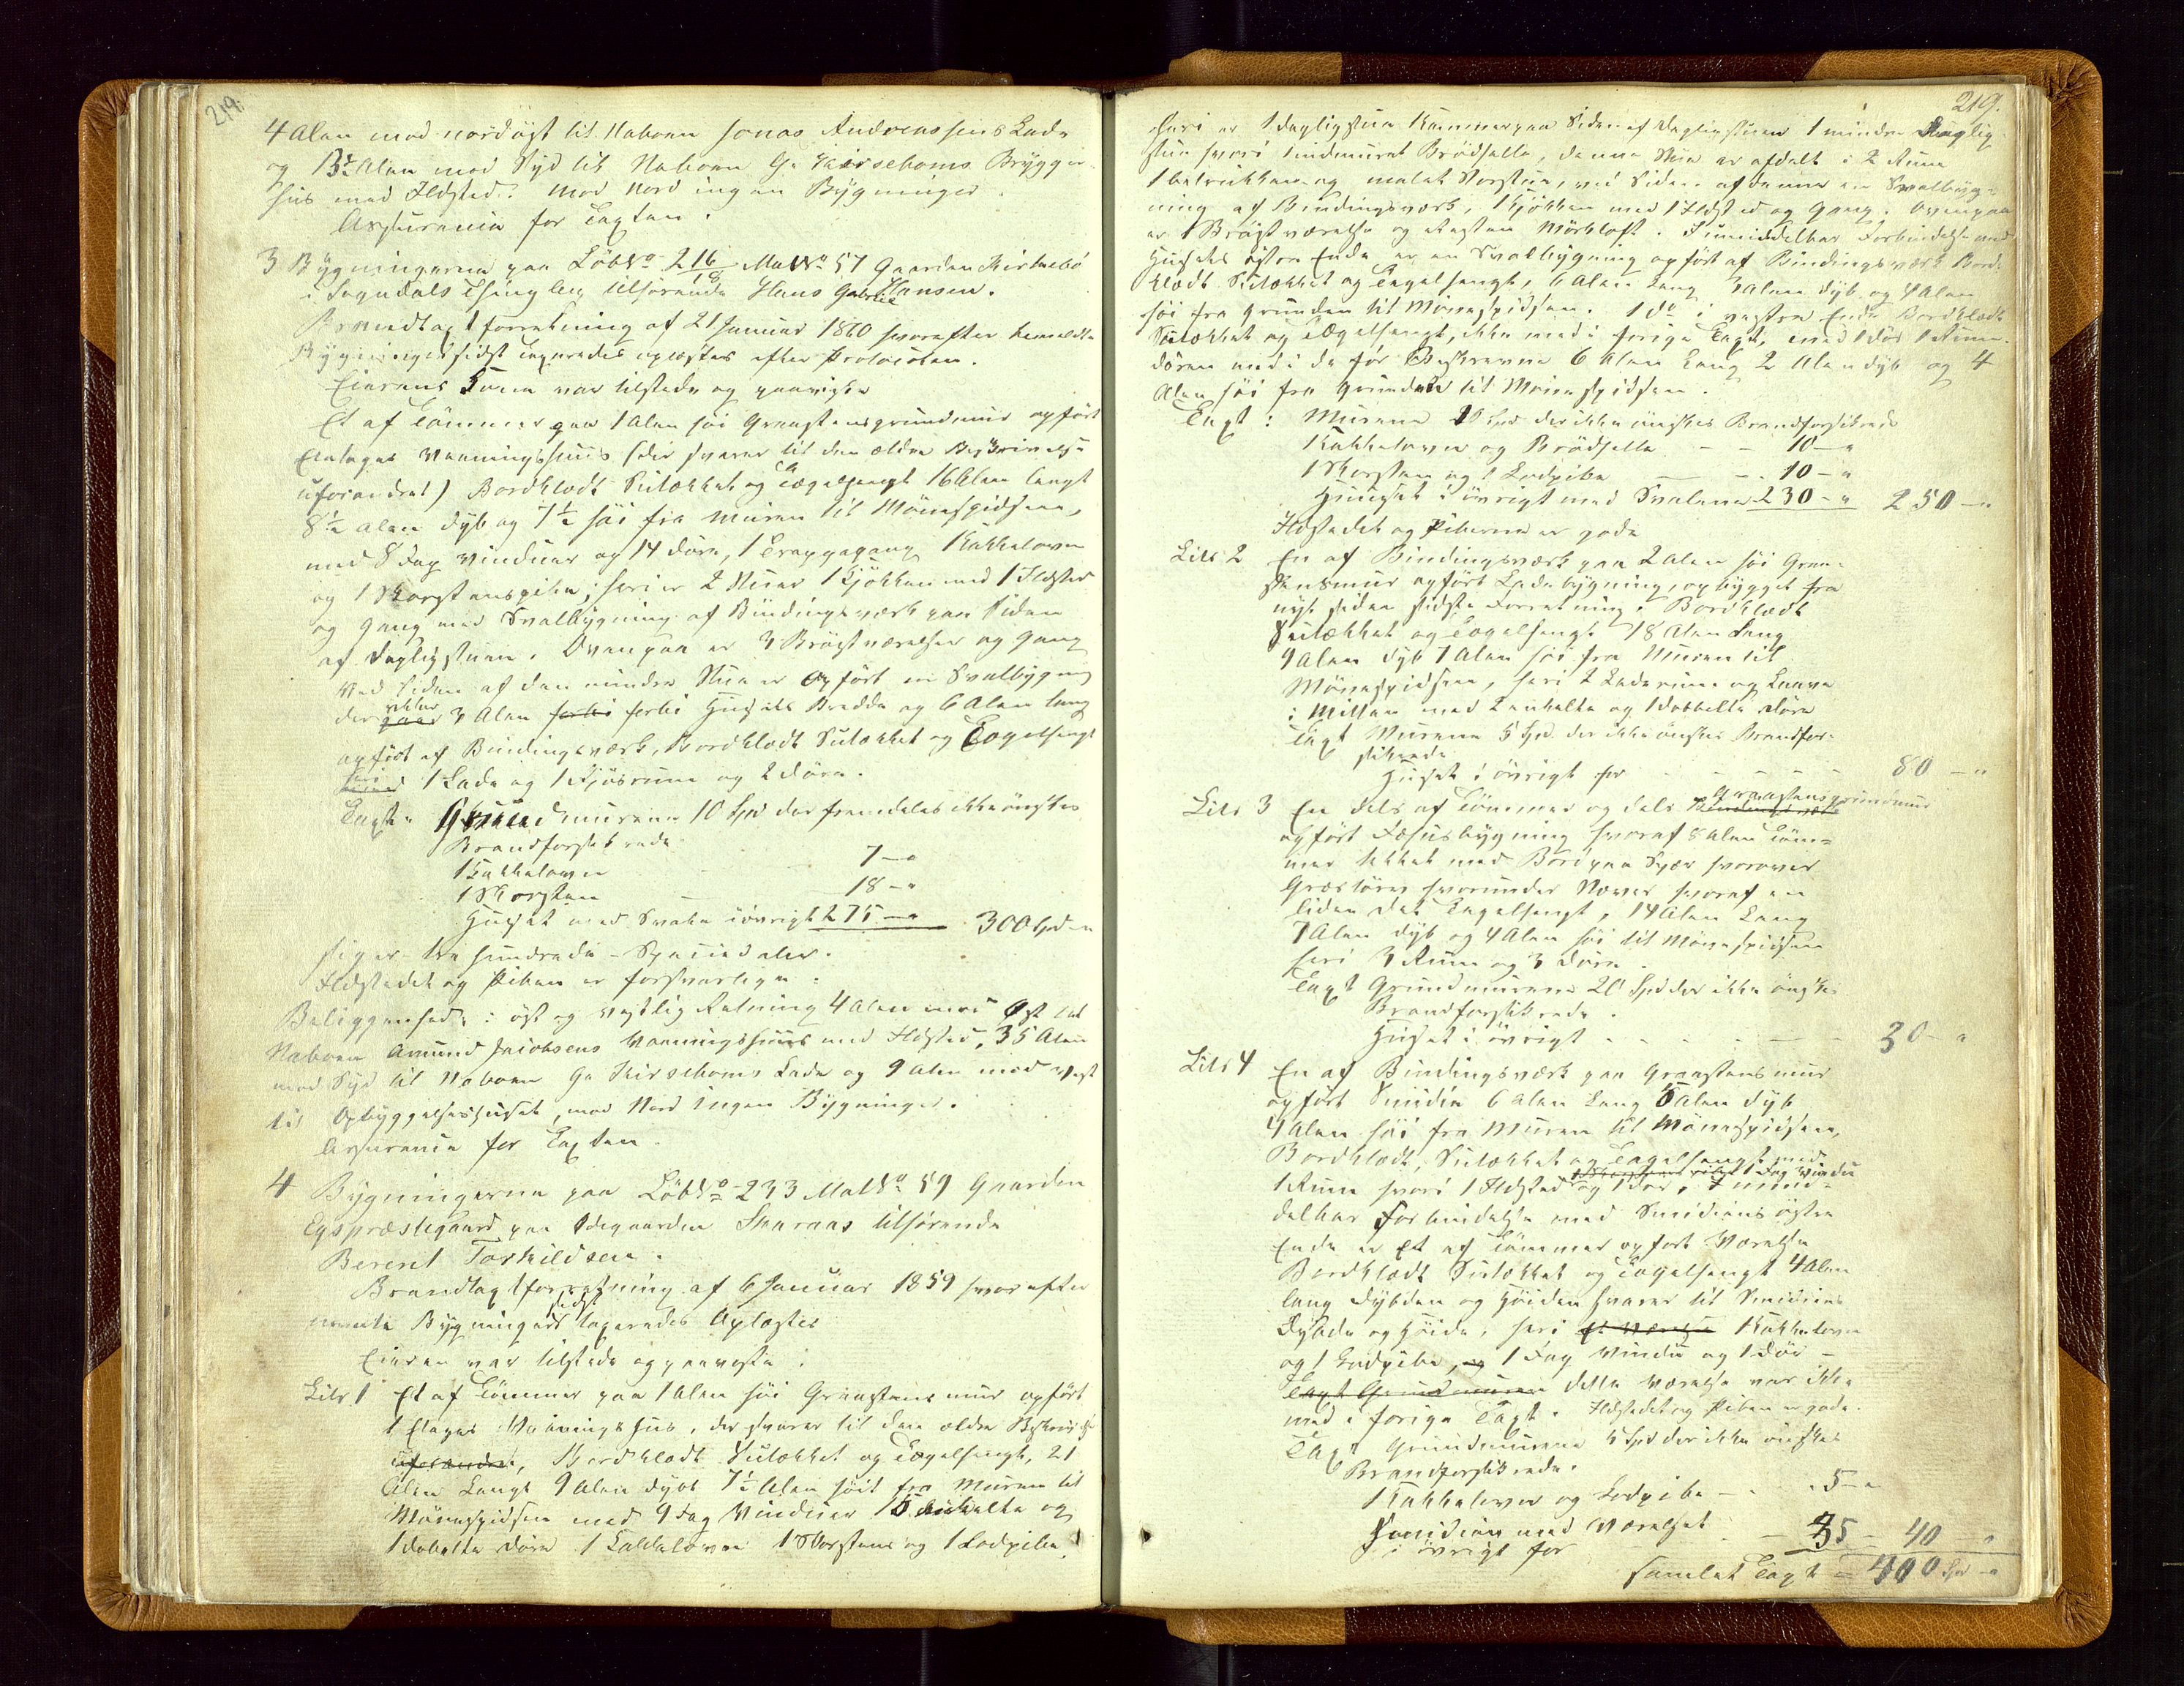 219.
4 Alen mod nordöst til Naboen Jonas Andreassens Lade
og 13½ Alen mod Syd til Naboen G. Kirseboms Brygger-
hus med Ildsted. Mod Nord ingen Bygninger.
Assurance for Taxten.
3 Bygningerne paa LöbNo 216/18 MatNo 57 Gaarden Kirkebö
i Sogndals Thinglag tilhörende Hans Gabriel Hansen.
Brandtaxtforretning af 21 Januar 1860 hvorefter bemeldte
Bygninger sidst taxeredes oplæstes efter Protocolen.
Eierens Kone var tilstede og paaviste
Et af Tömmer paa 1 Alen höi Graastensgrundmur opfört
Etages Vaaningshuus (der svarer til den ældre Beskrivelse
uforandret) Bordklædt Sutækket og Tægelhængt 16 Alen langt
8½ Alen dyb og 7½ höi fra Muren til Mönnspidsen,
med 8 Fag Vinduer og 14 Döre, 1 Trappegang 1 Kakkelovn
og 1 Skorstenspibe; heri er 2 Stuer 1 Kjökken med 1 Ildsted
og Gang med Svalbygning af Bindingsværk paa Siden
af Dagligstuen. Ovenpaa er 3 Brögstværelser og Gang
Ved Siden af den mindre Stue er opfört en Svalbygning
der rekker 3 Alen forbi Husets Bredde og 6 Alen lang
opfört af Bindingsværk, Bordklædt Sutækket og Tægelhængt
heri 1 Lade og 1 Fjösrum og 2 Döre.
Taxt: Grundmuren 10 Spd der fremdeles ikke önskes
Brandforsikrede
1 Kakkelovn 7 — "
1 Skorsten 18 — "
Huuset med Svale iövrigt 275 — " 300 Spd "
siger tre hundrede Speciedaler.
Ildstedet og Piben er forsvarlige.
Beliggenhed: öst og vestlig Retning 4 Alen mod Öst til
Naboen Amund Jacobsens Vaaningshuus med Ildsted, 35 Alen
mod Syd til Naboen G. Kirseboms Lade og 9 Alen mod Vest
til Opbyggelseshuset, mod Nord ingen Bygninger.
Assurance for Taxten.
4 Bygningerne paa LöbNo 233 MatNo 59 Gaarden
Egspræstegaard paa Ödegaarden Skaraas tilhörende
Berent Torkildsen.
Brandtaxtforretning af 6 Januar 1859 hvorefter
nævnte Bygninger sidst taxeredes Oplæstes
Eieren var tilstede og paaviste:
Litr 1 Et af Tömmer paa 1 Alen höi Graastens mur opfört
1 Etages Vaaningshus, der svarer til den ældre Beskrivelse
uforandret, Bordklædt Sutækket og Tægelhængt, 21
Alen Langt 9 Alen dybt 7½ Alen höit fra Muren til
Mönnspidsen med 9 Fag Vinduer 15 enkelte og
1 dobelte Döre 1 Kakkelovn 1 Skorstens og 1 Lodpibe
219.
heri er 1 dagligstue Kammer paa Siden af dagligstuen 1 mindre Daglig-
stue hvori 1 indmuret Brödhelle, denne Stue er afdelt i 2 Rum
og malet Forstue, ved Siden af denne en Svalbyg-
ning af Bindingsværk, 1 Kjökken med 1 Ildsted og Gang. Ovenpaa
er 1 Brögstværelse og Resten Mörkloft. I umiddelbar Forbindelse med
Husets östre Ende er en Svalbygning opfört af Bindingsværk Bord-
klædt Sutækket og Tægelhængt, 6 Alen lang 3 Alen dyb og 4 Alen
höi fra Grunden til Mönnspidsen. 1 do i vestre Ende Bordklædt
Sutækket og Tægelhængt, ikke med i forige Taxt, med 1 Dör 1 Rum.
Dören med i de för Beskrevne 6 Alen Lang 2 Alen dyb og 4
Alen höi fra Grunden til Mönnspidsen.
Taxt: Murene 10 Spd der ikke önskes Brandforsikrede
1 Kakkelovn og Brödhelle — — 10 — "
1 Skorsten og 1 Lodpibe — — 10 — "
Huuset i övrigt med Svalerne 230 — " 250 — "
Ildstedet og Piberne er gode
Litr 2 En af Bindingsværk paa 2 Alen höi Graa-
stensmur opfört Ladebygning, opbygget fra
nyt siden sidste Forretning, Bordklædt
Sutækket og Tægelhængt 18 Alen Lang
9 Alen dyb 7 Alen höi fra Muren til
Mönnspidsen, heri 2 Laderum og Laave
i Mitten med 2 enkelte og 1 dobbelte Döre
Taxt Murene 5 Spd der ikke önskes Brandfor-
sikrede
Huset i övrigt for — — — — 80 — "
Litr 3 En dels af Tömmer og dels Graastensgrundmur
opfört Fæhusbygning hvoraf 8 Alen Töm-
mer tækket med Bord paa Spær hvorover
Græstörv hvorunder Næver hvoraf en
liden del Tægelhængt, 14 Alen Lang
7 Alen dyb og 4 Alen höi til Mönnspidsen
heri 3 Rum og 3 Döre.
Taxt Grundmuren 20 Spd der ikke önskes
Brandforsikrede.
Huset i övrigt — — — — 30 — "
Litr 4 En af Bindingsværk paa Graastens mur
opfört Smidie 6 Alen Lang 5 Alen dyb
4 Alen höi fra Muren til Mönnspidsen,
Bordklædt, Sutækket og Tægelhængt med
1 Rum hvori 1 Ildsted og 1 Dör, 1 Fag Vindu I umid-
delbar Forbindelse med Smidiens östre
Ende er Et af Tömmer opfört Værelse
Bordklædt Sutækket og Tægelhængt 4 Alen
lang Dybden og Höiden svarer til Smidiens
Dybde og Höide, heri et Værelse 1 Kakkelovn
og 1 Lodpibe, og 1 Fag Vindu og 1 Dör —
Taxt Grundmuren dette Værelse var ikke
med i forige Taxt. Ildstedet og Piben er gode.
Taxt Grundmurene 5 Spd der ikke önskes
Brandforsikrede.
1 Kakkelovn og Lodpibe — 5 — "
Smidien med Værelset
i övrigt for — 35 — 40 "
samlet Taxt = 400 Spd "